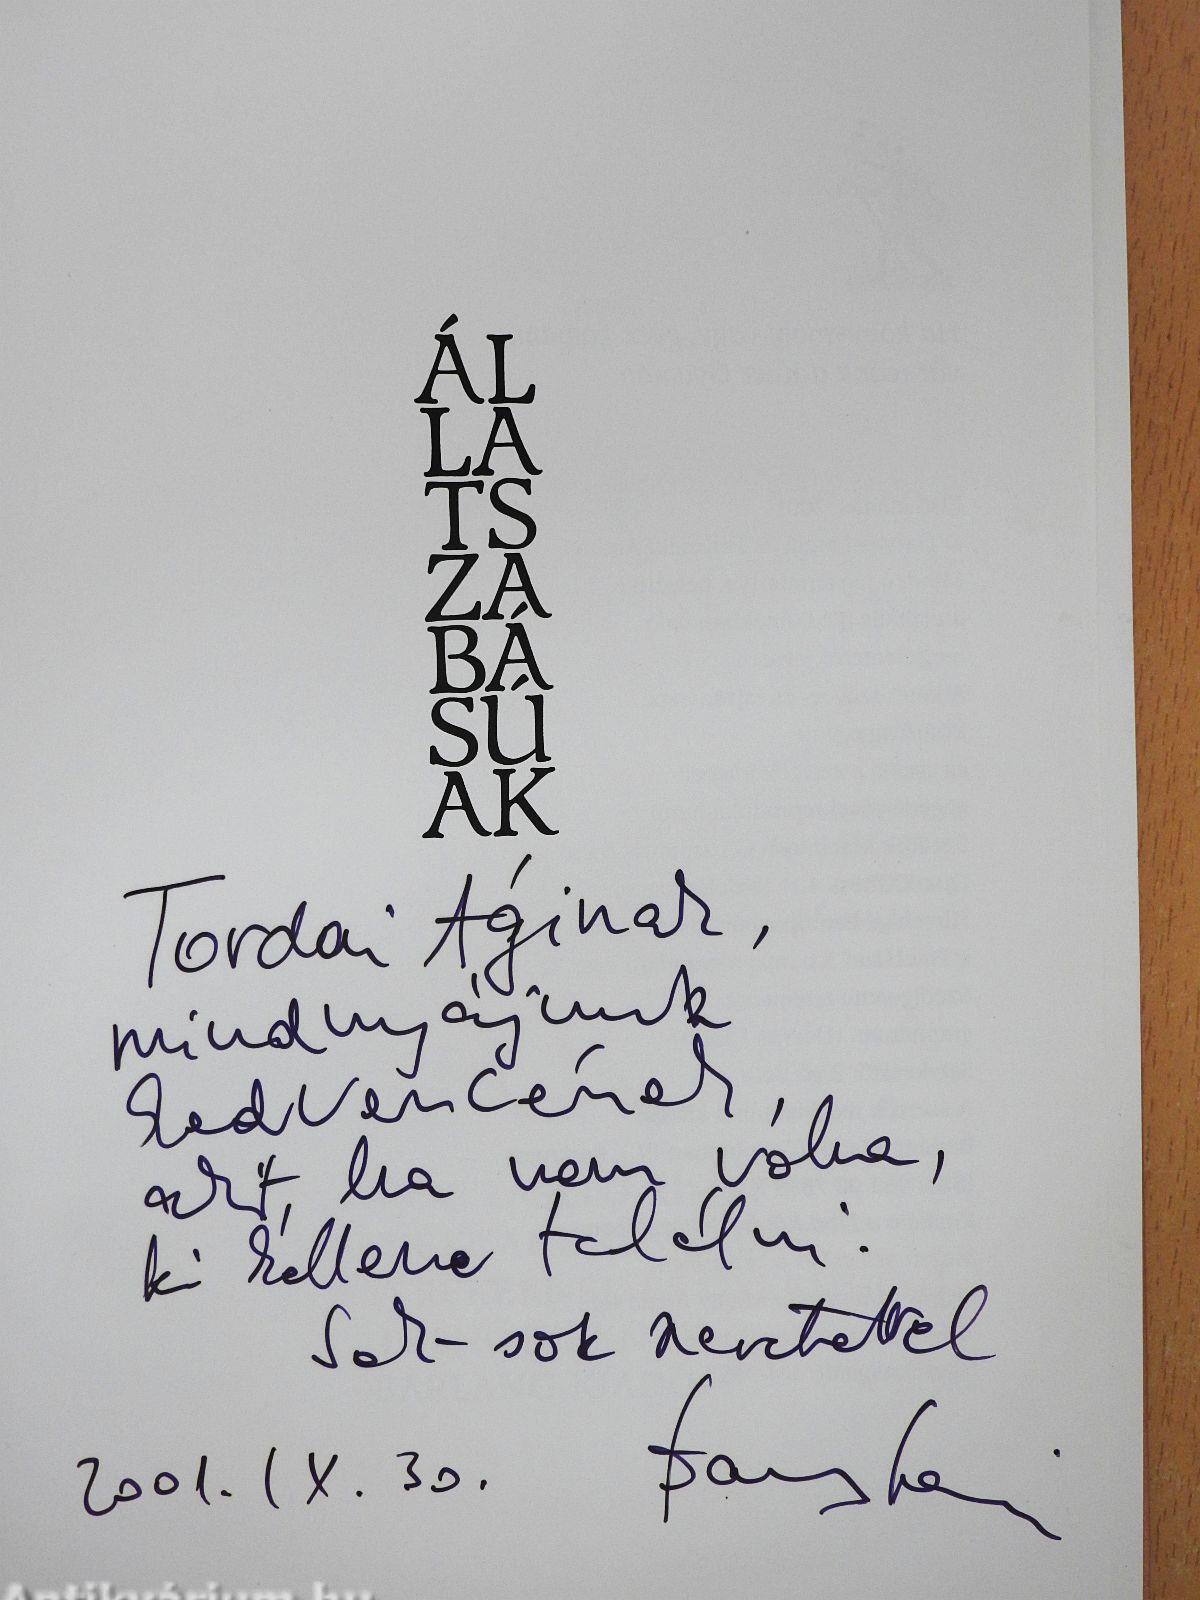 ÁL
LA
TS
ZA
BÁ
SÚ
AK
Tordai Áginak,
mindnyájunk
kedvencének,
akit, ha nem vólna,
ki kéllene találni:
Sok-sok szeretettel
2001. IX. 30.
Antikvárium.hu